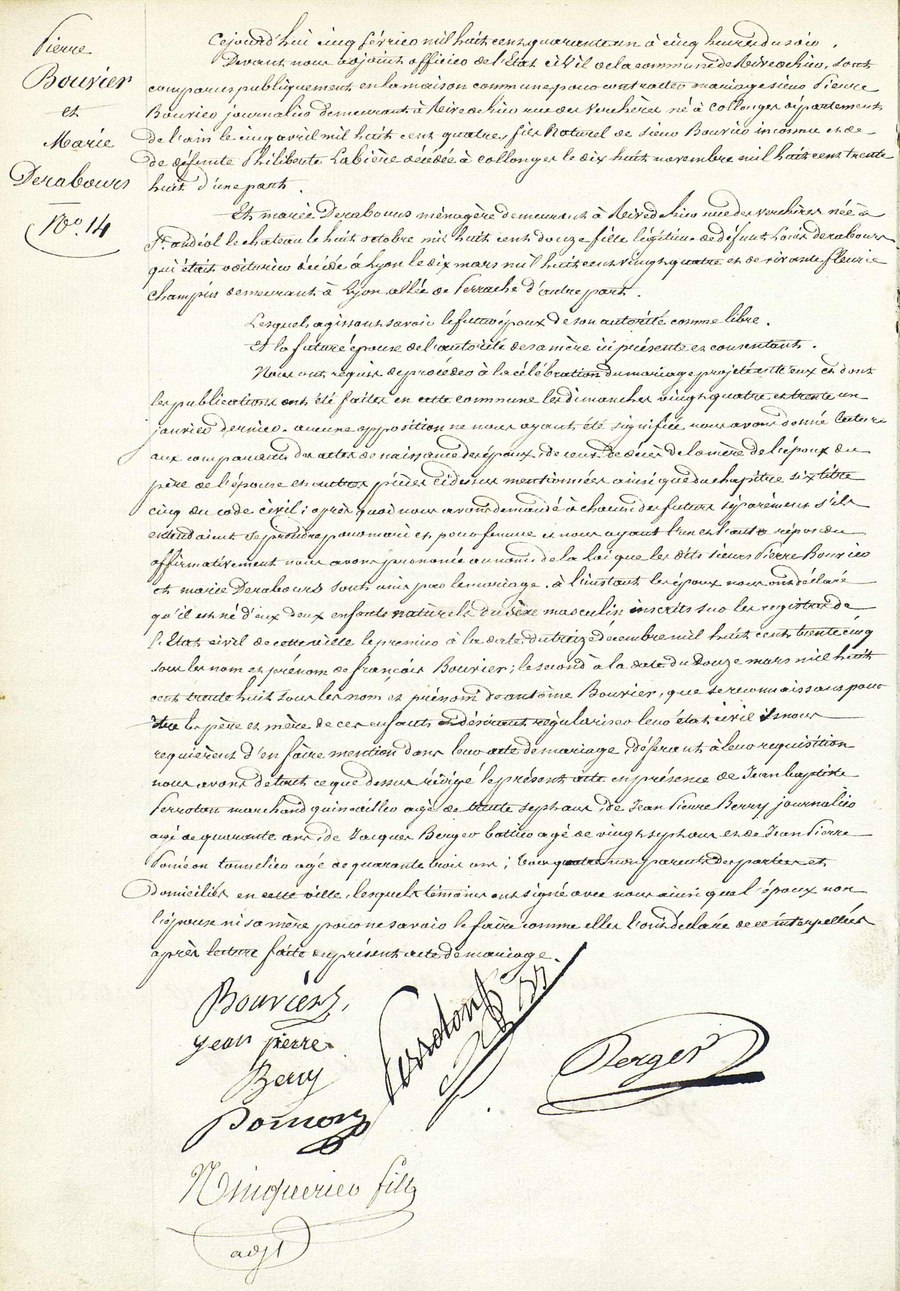 Pierre
Bouvier
et
Marie
Derabours
No. 14
Cejourd'hui cinq février mil huit cent quarante un à cinq heures du soir.
Devant nous adjoint officier de l'Etat civil de la commune de Rivedegier, sont
comparus publiquement en la maison commune pour contracter mariage sieur Pierre
Bouvier journalier demeurant à Rivedegier rue des Verchères né à Collonges département
de l'ain le cinq avril mil huit cent quatre, fils Naturel de sieur Bouvier inconnu et de
de défunte Philiberte Labière décédée à Collonges le dix huit novembre mil huit cent trente
huit d'une part.
Et marie Derabours ménagère demeurant à Rivedegier rue des verchères née à
St. andéol le chateau le huit octobre mil huit cent douze fille légitime de défunt Louis Derabours
qui était voiturier décédé à Lyon le dix mars mil huit cent vingt quatre et de vivante fleurie
Champin demeurant à Lyon allée de Perrache d'autre part.
Lesquels agissant savoir le futur époux de son autorité comme libre.
Et la future épouse de l'autorité de sa mère ici présente et consentant.
Nous ont requis de procéder à la célébration du mariage projeté entr'eux et dont
les publications ont été faites en cette commune les dimanches vingt quatre et trente un
janvier dernier. aucune opposition ne nous ayant été signifiée nous avons donné lecture
aux comparants des actes de naissance des époux, de ceux de décès de la mère de l'époux du
père de l'épouse et autres pièces cidessus mentionnées ainsi que du chapitre six titre
cinq du code civil; après quoi nous avons demandé à chacun des futurs séparément s'ils
entendaient se prendre pour mari et pour femme et nous ayant l'un et l'autre répondu
affirmativement nous avons prononcé au nom de la loi que les dits sieurs Pierre Bouvier
et marie Derabours sont unis par le mariage, à l'instant les époux nous ont déclaré
qu'il est né d'eux deux enfants naturels du sexe masculin inscrits sur les registres de
l'Etat civil de cette ville le premier à la date du treize décembre mil huit cent trente cinq
sous les nom et prénom de françois Bouvier; le second à la date du douze mars mil huit
cent trente huit sous les nom et prénom de antoine Bouvier, que se reconnaissant pour
être les père et mère de ces enfants et désirant régulariser leur état civil ils nous
requièrent d'en faire mention dans leur acte de mariage, déférant à leur requisition
nous avons de tout ce que dessus rédigé le présent acte en présence de Jean baptiste
Perroton marchand quincailler agé de trente sept ans, de Jean Pierre Berry journalier
agé de quarante ans, de Jacques Berger batelier agé de vingt sept ans et de Jean Pierre
tonnelier agé de quarante trois ans; tous quatre non parents des parties et
Domiciliés en cette ville, lesquels témoins ont signé avec nous ainsi que l'époux non
l'épouse ni sa mère pour ne savoir le faire comme elles l'ont déclaré de ce interpellées
après lecture faite du présent acte de mariage.
Bouvier
jean pierre
Berry
Perroton
Berger
fils
adjt